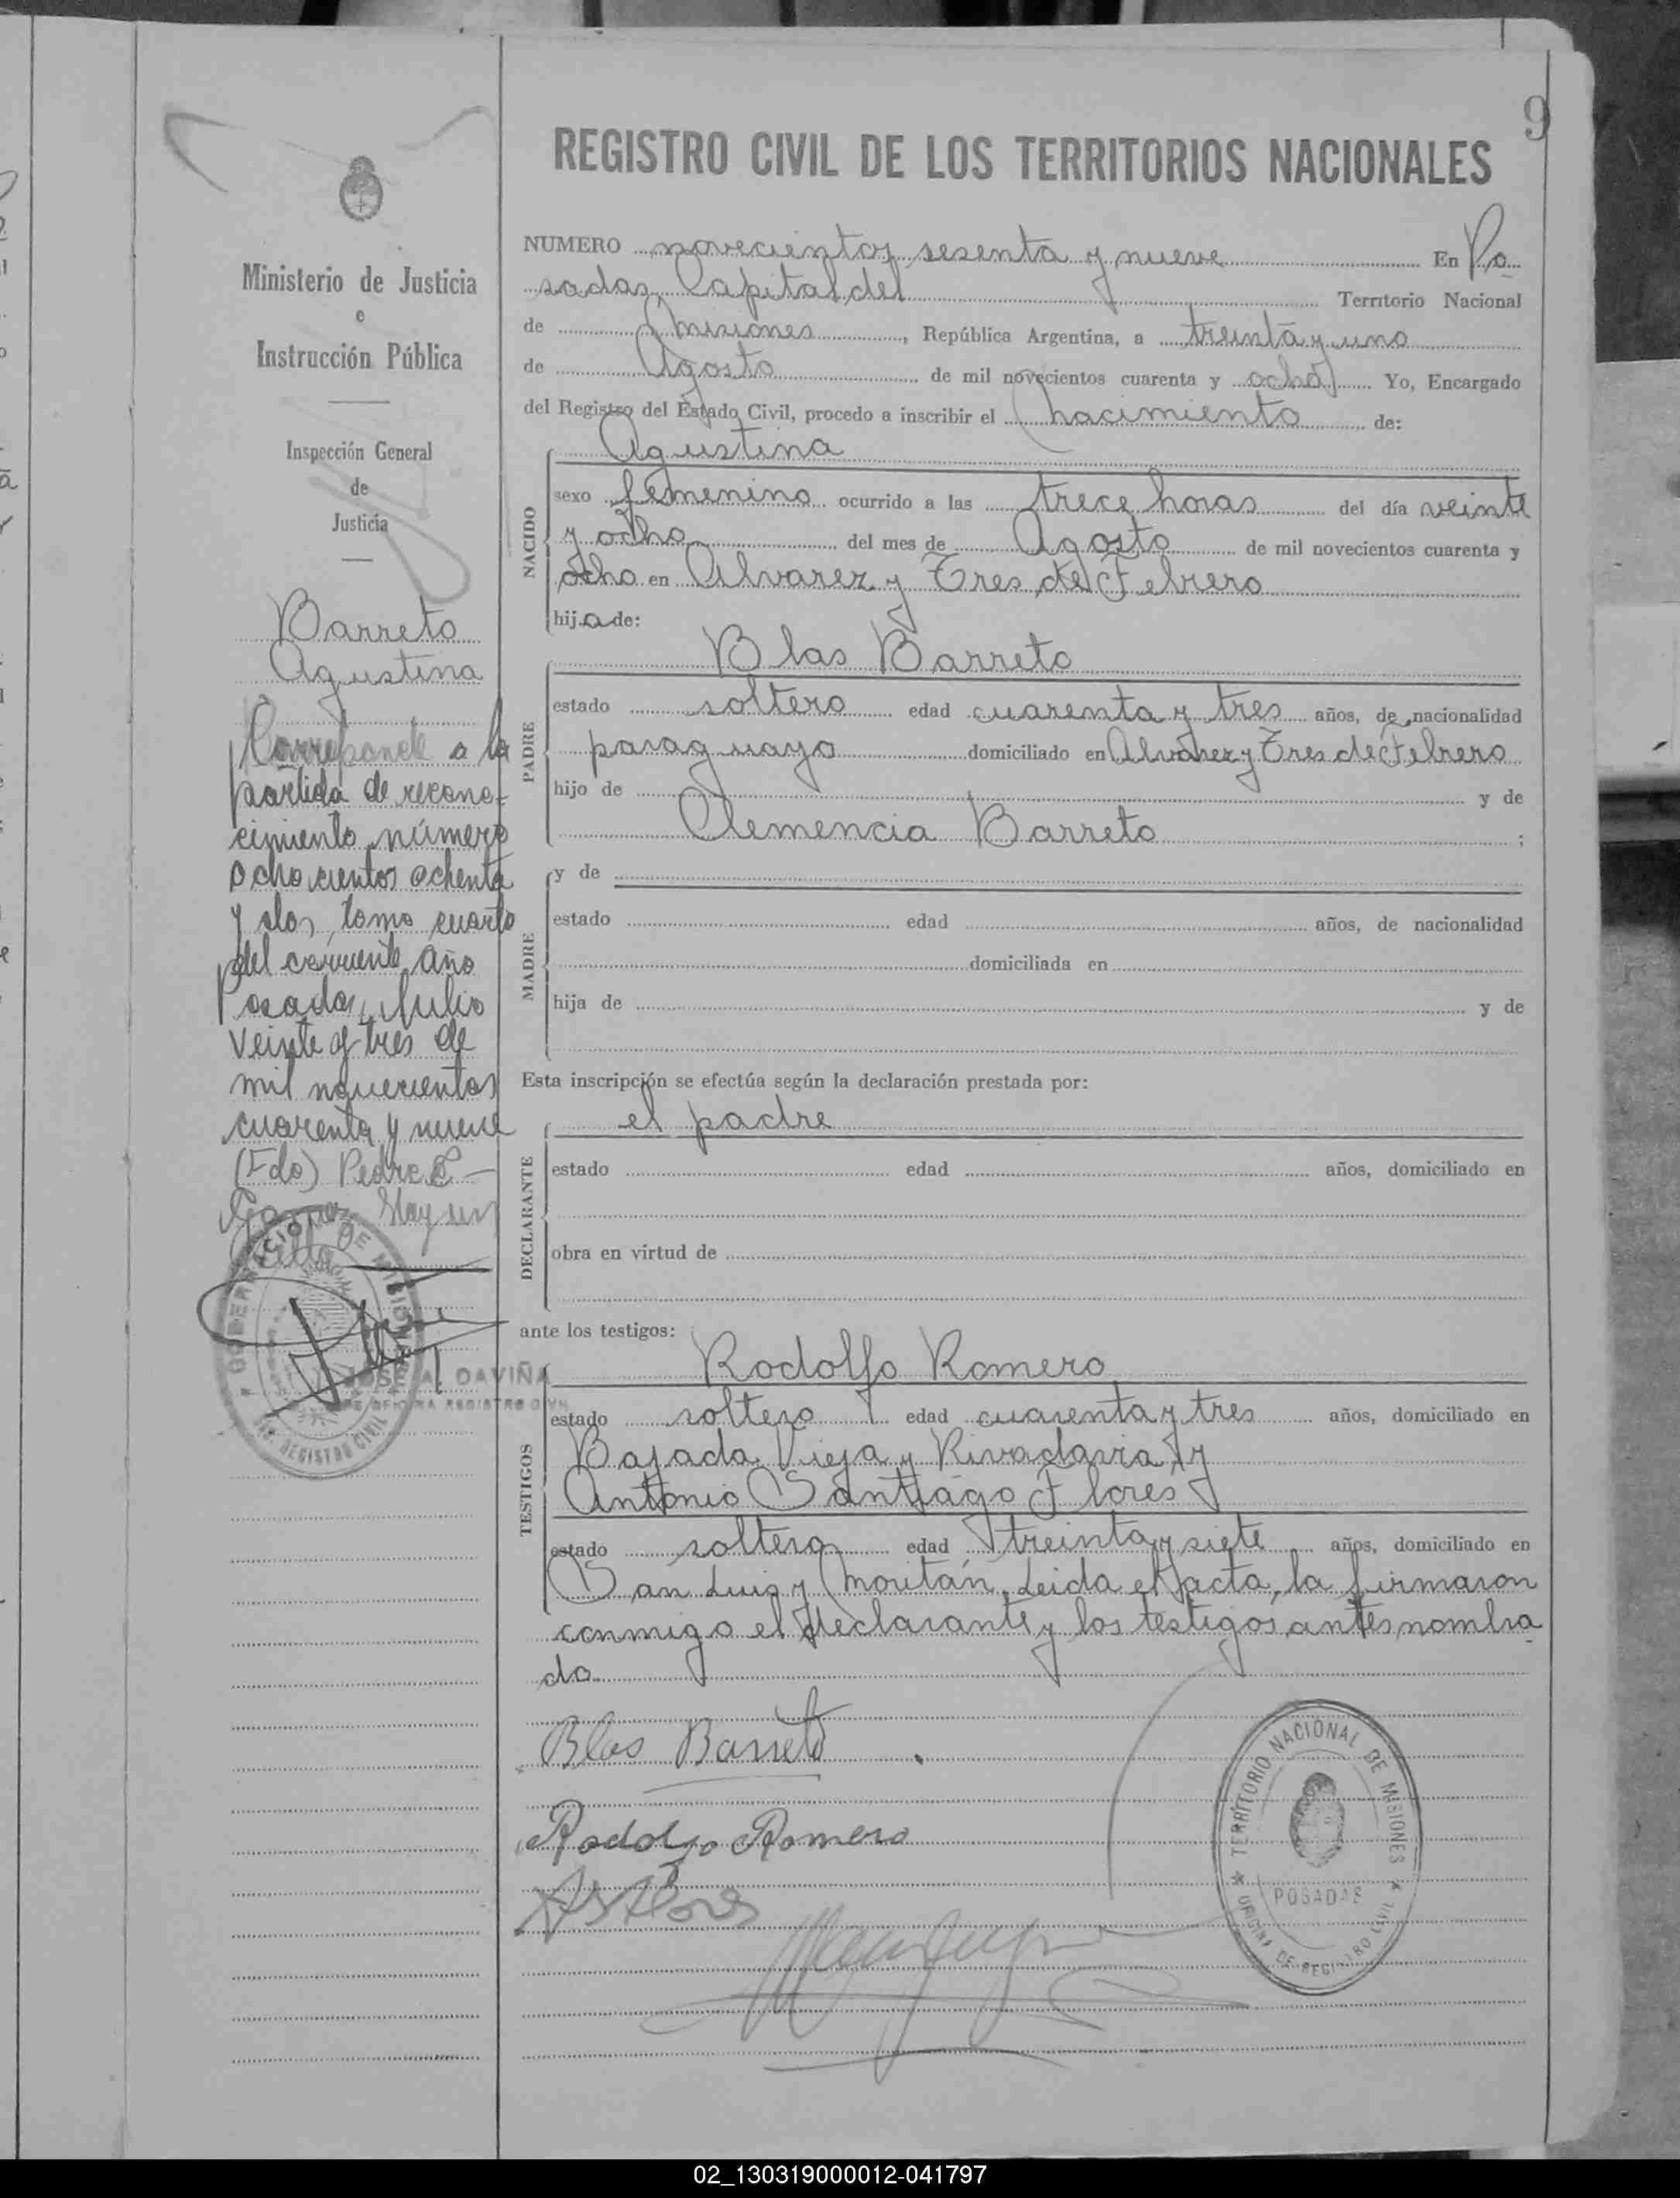 9
REGISTRO CIVIL DE LOS TERRITORIOS NACIONALES
Ministerio de Justicia
e
Instrucción Pública
Inspección General
de
Justicia
Barreto
Agustina
Corresponde a la
partida de recono-
cimiento número
ochocientos ochenta
y dos, tomo cuarto
del corriente año
Posadas, Julio
veinte y tres de
mil novecientos
cuarenta y nueve
(Fdo) Pedro
GOBERNACION DE MISIONES
REGISTRO CIVIL
JOSE A. DAVIÑA
JEFE OFICINA REGISTRO CIVIL
NUMERO novecientos sesenta y nueve En Po
sadas, Capital del Territorio Nacional
de Misiones, República Argentina, a treinta y uno
de Agosto de mil novecientos cuarenta y ocho Yo, Encargado
del Registro del Estado Civil, procedo a inscribir el nacimiento de:
Agustina
NACIDO
sexo femenino ocurrido a las trece horas del día veinte
y ocho del mes de Agosto de mil novecientos cuarenta y
ocho en Alvarez y Tres de Febrero
hija de:
Blas Barreto
PADRE
estado soltero edad cuarenta y tres años, de nacionalidad
paraguayo domiciliado en Alvarez y Tres de Febrero
hijo de y de
Clemencia Barreto ;
y de
MADRE
estado edad años, de nacionalidad
domiciliada en
hija de y de
Esta inscripción se efectúa según la declaración prestada por:
el padre
DECLARANTE
estado edad años, domiciliado en
obra en virtud de
ante los testigos:
Rodolfo Romero
TESTIGOS
estado soltero edad cuarenta y tres años, domiciliado en
Bajada Vieja y Rivadavia y
Antonio Santiago Flores
estado soltero edad treinta y siete años, domiciliado en
San Luis y Moritán. Leida el acta, la firmaron
conmigo el declarante y los testigos antes nombra
do
Blas Barreto
Rodolfo Romero
ASFlores
TERRITORIO NACIONAL DE MISIONES
POSADAS
OFICINA DE REGISTRO CIVIL
02_130319000012-041797